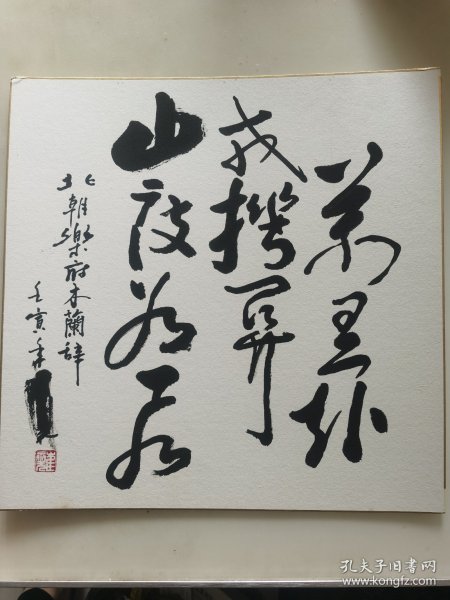 萬里赴
戎機關
山度若飛
北朝樂府木蘭辭
壬寅年
孔夫子旧书网
www.kongfz.com